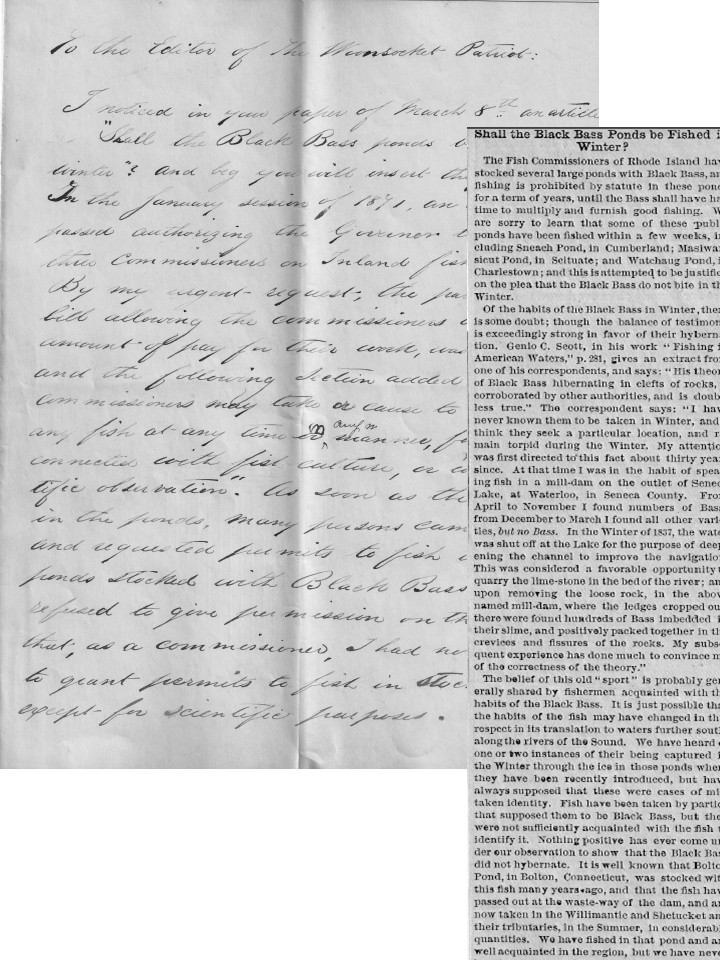 To the Editor of The Woonsocket Patriot:
I noticed in your paper of March 8th. an article
"Shall the Black Bass ponds b
winter"? and beg you will insert th
In the January session of 1871, an
passed authorizing the Governor t
three Commissioners on Inland fish
By my urgent request, the pa
bill allowing the commissioners a
amount of pay for their work, was
and the following section added
commissioners may take or cause to
any fish at any time or manner, fo
connected with fish culture, or
tific observation". As soon as the
in the ponds, many persons cam
and requested permits to fish
ponds stocked with Black Bass
refused to give permission on th
that, as a commissioner, I had no
to grant permits to fish in stoc
except for scientific purposes.
Shall the Black Bass Ponds be Fished i
Winter?
The Fish Commissioners of Rhode Island hav
stocked several large ponds with Black Bass, an
fishing is prohibited by statute in these pond
for a term of years, until the Bass shall have ha
time to multiply and furnish good fishing. W
are sorry to learn that some of these publi
ponds have been fished within a few weeks, i
cluding Sneach Pond, in Cumberland; Maswa
sicut Pond, in Scituate; and Watchaug Pond, i
Charlestown; and this is attempted to be justifie
on the plea that the Black Bass do not bite in th
Winter.
Of the habits of the Black Bass in Winter, ther
is some doubt; though the balance of testimon
is exceedingly strong in favor of their hyberna
tion. Genlo C. Scott, in his work "Fishing i
American Waters," p. 281, gives an extract fro
one of his correspondents, and says: "His theor
of Black Bass hibernating in clefts of rocks,
corroborated by other authorities, and is doub
less true." The correspondent says: "I hav
never known them to be taken in Winter, and
think they seek a particular location, and r
main torpid during the Winter. My attentio
was first directed to this fact about thirty year
since. At that time I was in the habit of spea
ing fish in a mill-dam on the outlet of Senec
Lake, at Waterloo, in Seneca County. Fro
April to November I found numbers of Bas
from December to March I found all other vari
ties, but no Bass. In the Winter of 1837, the wate
was shut off at the Lake for the purpose of deep
ening the channel to improve the navigatio
This was considered a favorable opportunity t
quarry the lime-stone in the bed of the river; an
upon removing the loose rock, in the abov
named mill-dam, where the ledges cropped ou
there were found hundreds of Bass imbedded i
their slime, and positively packed together in th
crevices and fissures of the rocks. My subse
quent experience has done much to convince m
of the correctness of the theory."
The belief of this old "sport" is probably gen
erally shared by fishermen acquainted with th
habits of the Black Bass. It is just possible tha
the habits of the fish may have changed in th
respect in its translation to waters further sout
along the rivers of the Sound. We have heard
one or two instances of their being captured i
the Winter through the ice in those ponds wher
they have been recently introduced, but hav
always supposed that these were cases of mi
taken identity. Fish have been taken by partie
that supposed them to be Black Bass, but the
were not sufficiently acquainted with the fish t
identify it. Nothing positive has ever come un
der our observation to show that the Black Bas
did not hybernate. It is well known that Bolto
Pond, in Bolton, Connecticut, was stocked wit
this fish many years ago, and that the fish hav
passed out at the waste-way of the dam, and ar
now taken in the Willimantic and Shetucket an
their tributaries, in the Summer, in considerabl
quantities. We have fished in that pond and ar
well acquainted in the region, but we have neve